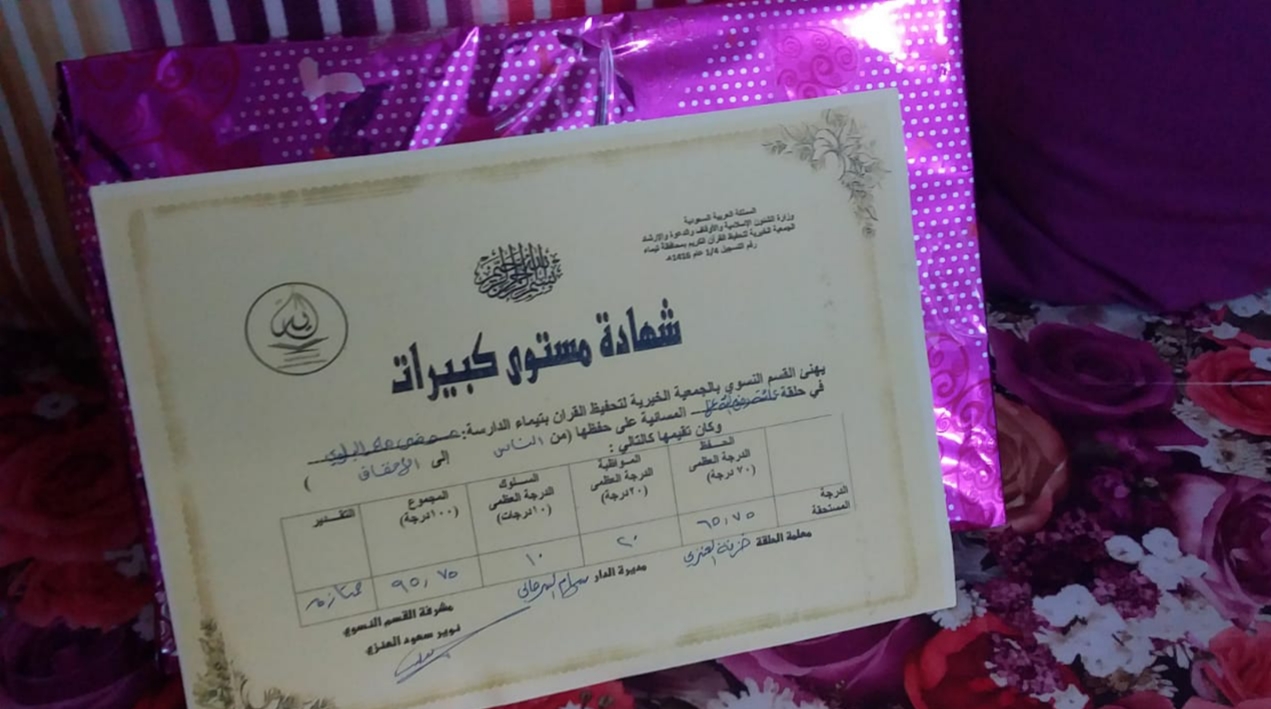 المملكة العربية السعودية
وزارة الشئون الإسلامية والأوقاف والدعوة والإرشاد
الجمعية الخيرية لتحفيظ القرآن الكريم بمحافظة تيماء
رقم التسجيل 1/4 عام 1416هـ
بسم الله الرحمن الرحيم
شهادة مستوى كبيرات
يهنئ القسم النسوي بالجمعية الخيرية لتحفيظ القران بتيماء الدارسة: البلوي
في حلقة المسائية على حفظها (من الناس إلى الأحقاف )
وكان تقيمها كالتالي :
الحفظ الدرجة العظمى (٧٠ درجة)
المواظبة الدرجة العظمى (٢٠درجة)
السلوك الدرجة العظمى (١٠درجات)
المجموع (١٠٠درجة)
التقدير
الدرجة المستحقة ٦٥,٧٥ ٢٠ ١٠ ٩٥,٧٥ ممتازه
معلمة الحلقة العنزي
مديرة الدار سهام
مشرفة القسم النسوي
نوير سعود العنزي